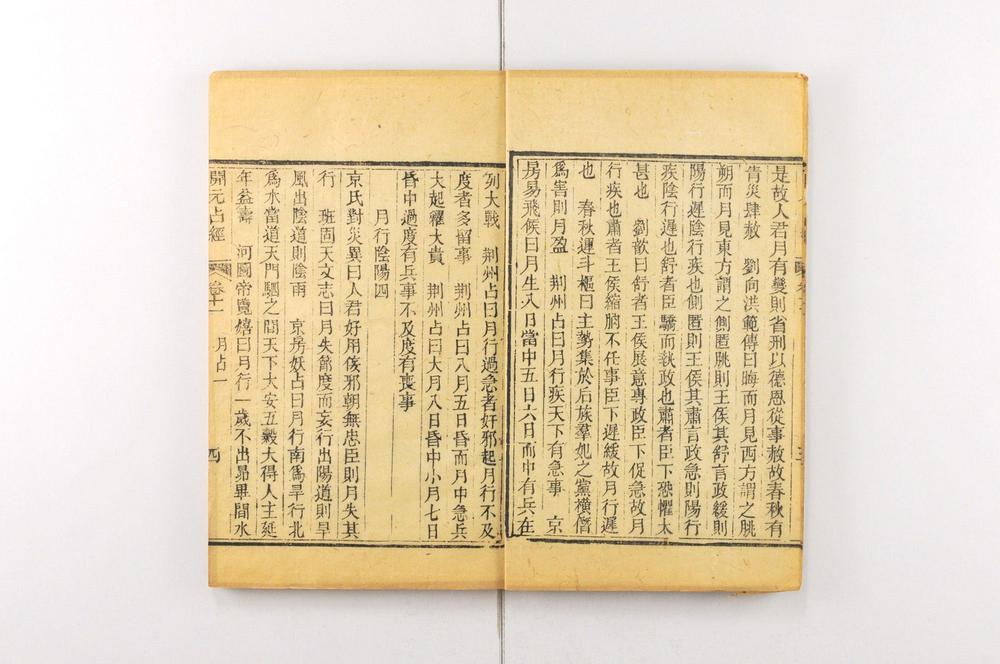 是故人君月有變則省刑以德恩從事赦故春秋有
眚災肆赦　劉向洪範傳曰晦而月見西方謂之朓
朔而月見東方謂之側匿朓則王侯其舒言政緩則
陽行遲陰行疾也側匿則王侯其肅言政急則陽行
疾陰行遲也舒者臣驕而執政也肅者臣下恐懼太
甚也　劉歆曰舒者王侯展意專政臣下促急故月
行疾也肅者王侯縮朒不任事臣下遲緩故月行遲
也　春秋運斗樞曰主勢集於后族羣妃之黨橫僭
爲害則月盈　荆州占曰月行疾天下有急事　京
房易飛候曰月生八日當中五日六日而中有兵在
外大戰　荆州占曰月行過急者好邪起月行不及
度者多留事　荆州占曰八月五日昏而月中急兵
大起糴大貴　荆州占曰大月八日昏中小月七日
昏中過度有兵事不及度有喪事
月行陰陽四
京氏對災異曰人君好用佞邪朝無忠臣則月失其
行　班固天文志曰月失節度而妄行出陽道則旱
風出陰道則陰雨　京房妖占曰月行南爲旱行北
爲水當道天門駟之間天下大安五穀大得人主延
年益壽　河圖帝覽嬉曰月行一歲不出昴畢間水
開元占經　卷十一　月占一　四